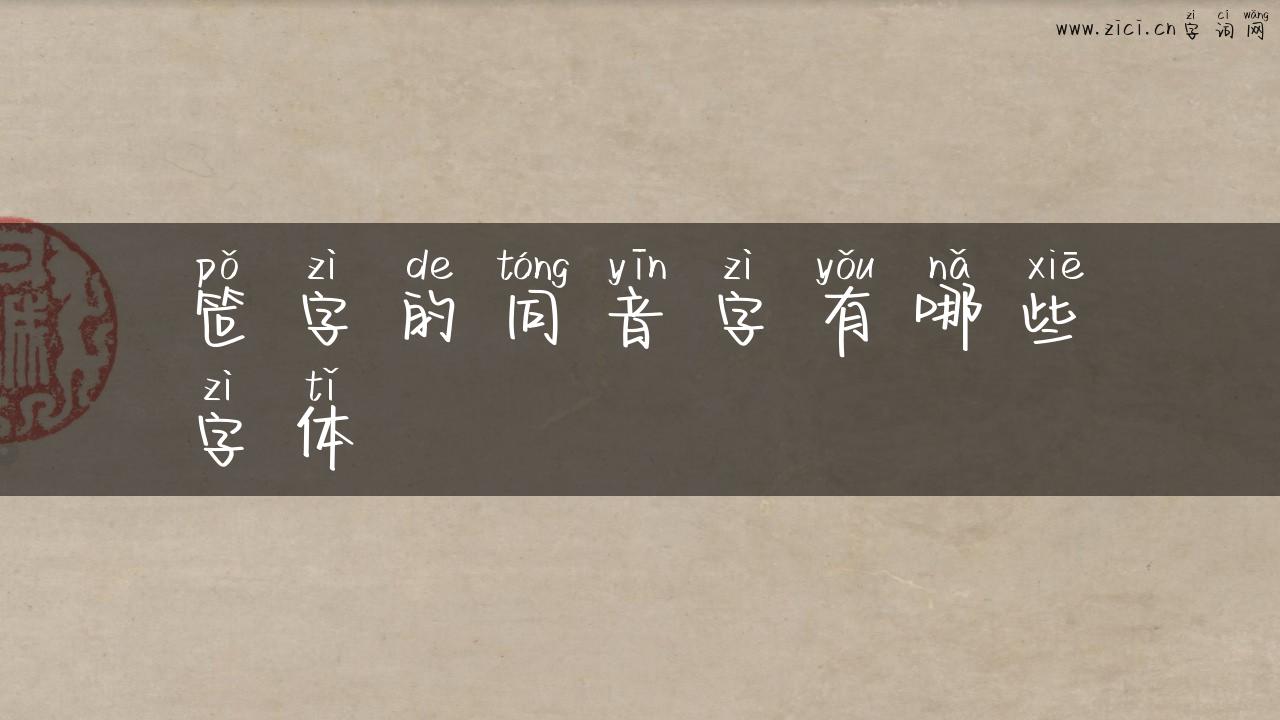 zì cí wǎng
www.zici.cn 字 词 网
pǒ zì de tóng yīn zì yǒu nǎ xiē
笸 字 的 同 音 字 有 哪 些
zì tǐ
字 体